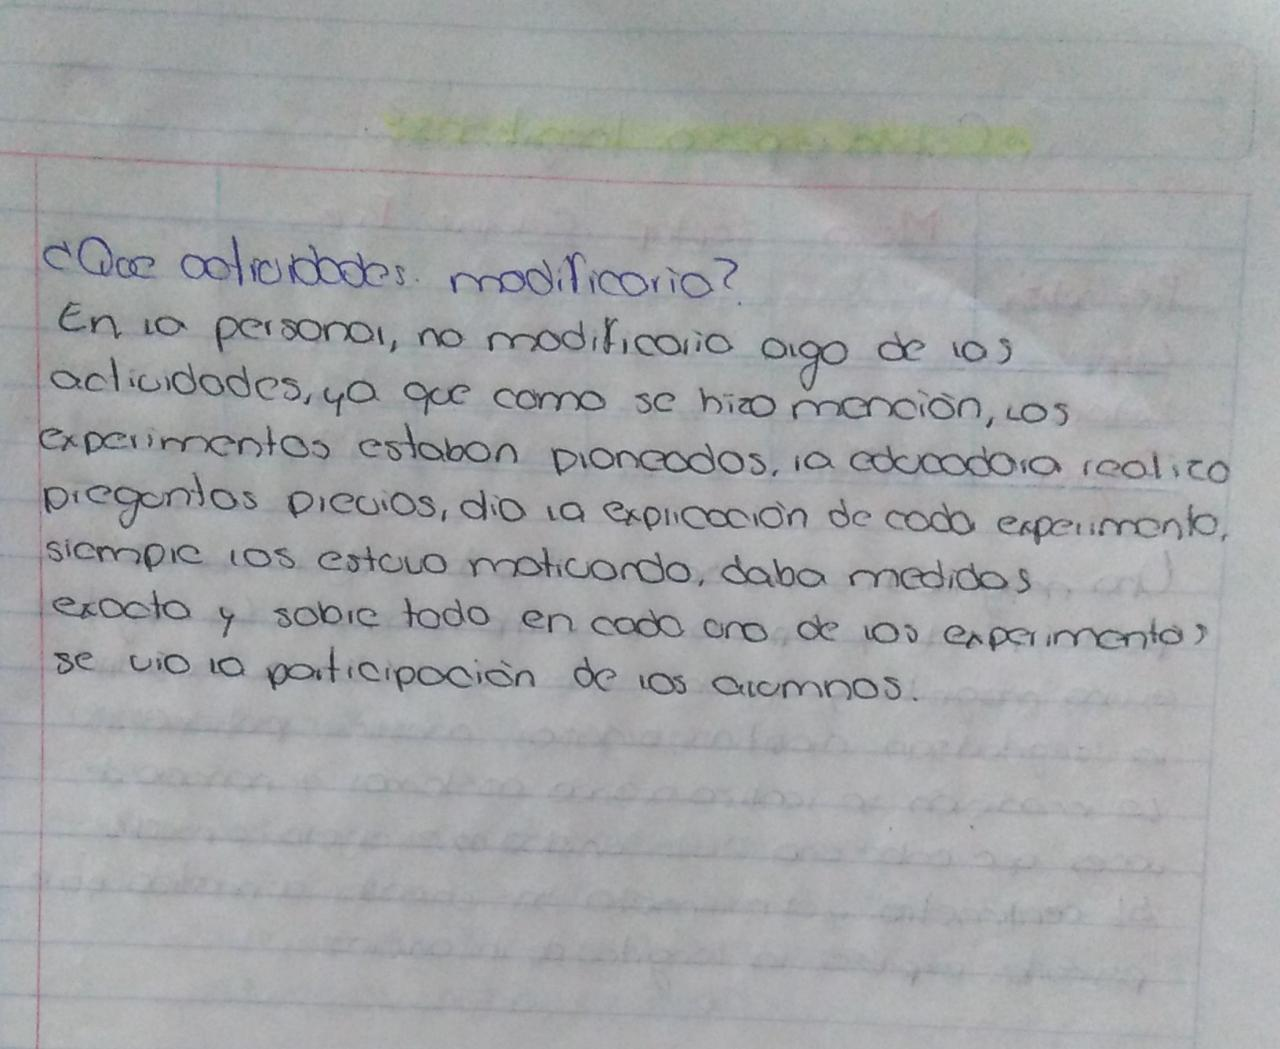 ¿Que actividades modificaria?
En lo personal, no modificaria algo de las
actividades, ya que como se hizo mención, los
experimentos estaban planeados, la educadora realizo
preguntas previas, dio la explicación de cada experimento,
siempre los estuvo motivando, daba medidas
exacta y sobre todo en cada uno de los experimentos
se vio la participación de los alumnos.